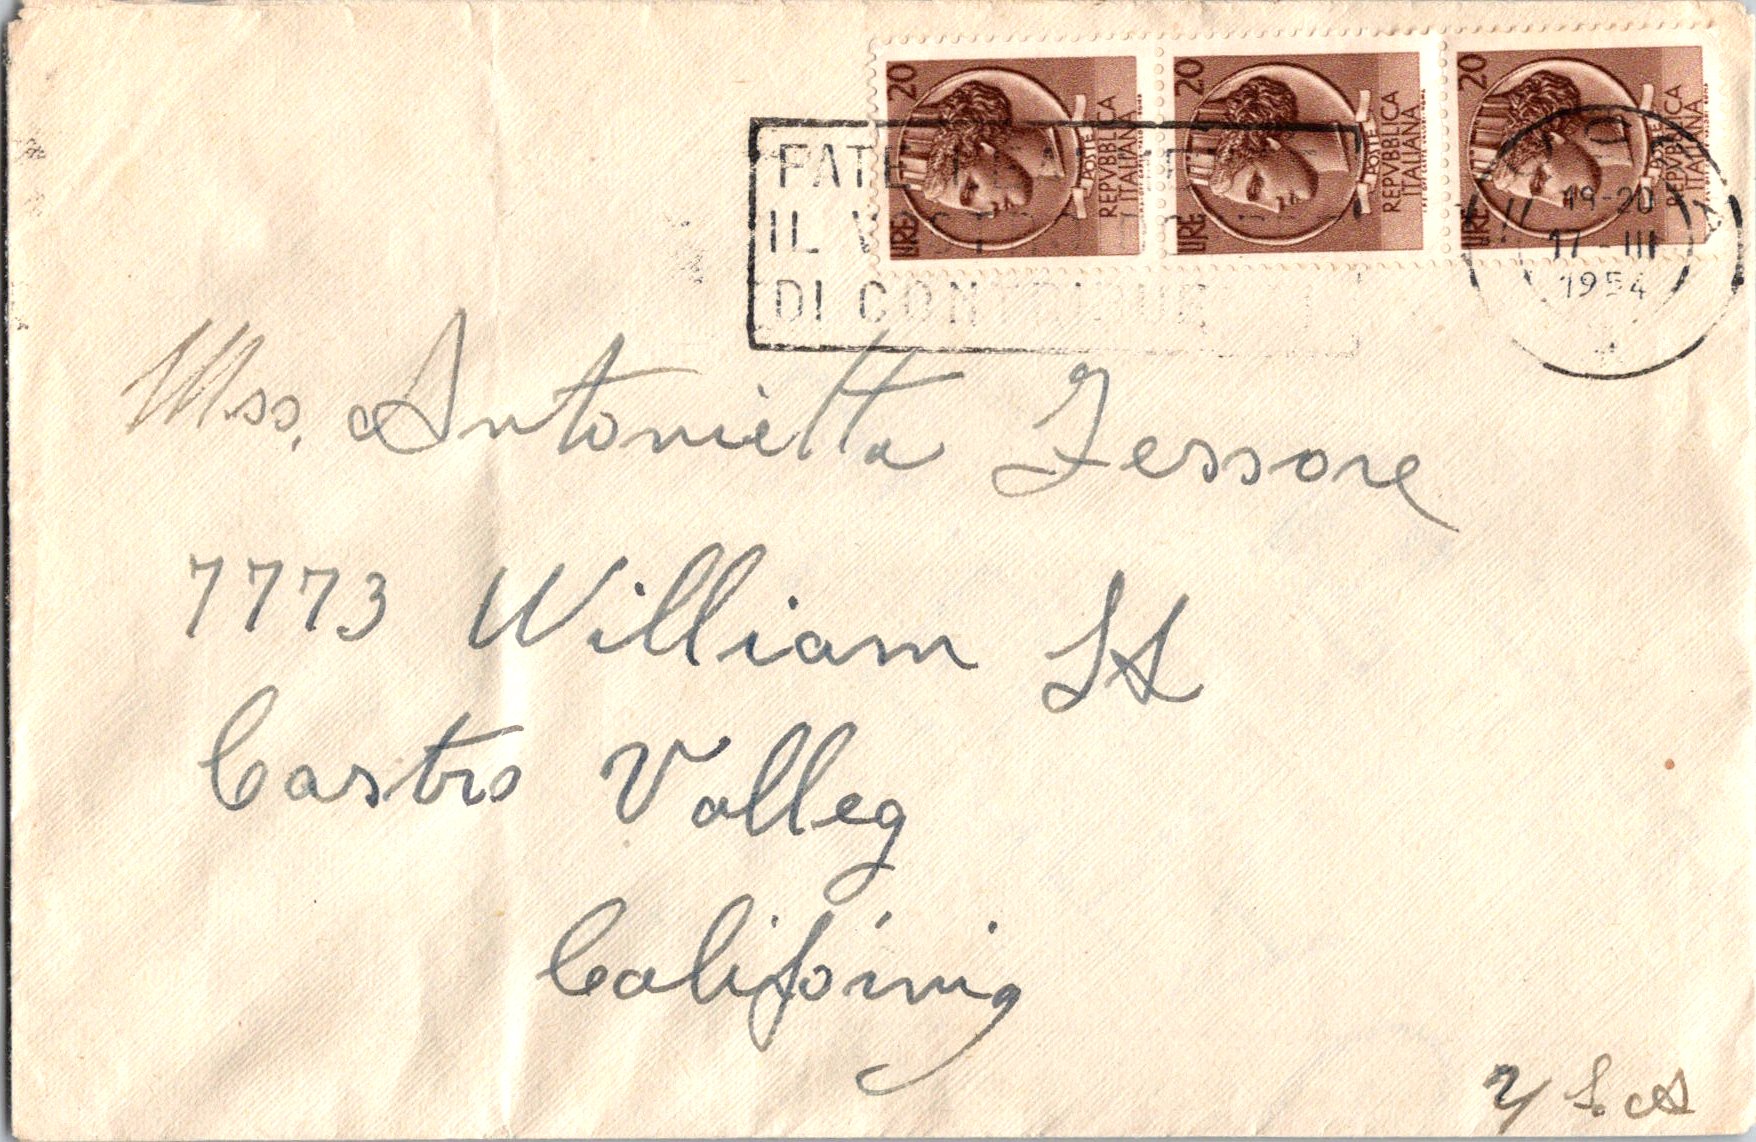 20 20 20
LIRE LIRE LIRE
POSTE POSTE POSTE
REPVBBLICA REPVBBLICA REPVBBLICA
ITALIANA ITALIANA ITALIANA
FATE
IL
DI CONTRIBUE
19-20
17-III
1954
Mss. Antonietta Tessore
7773 William St
Castro Valley
California
U S. A